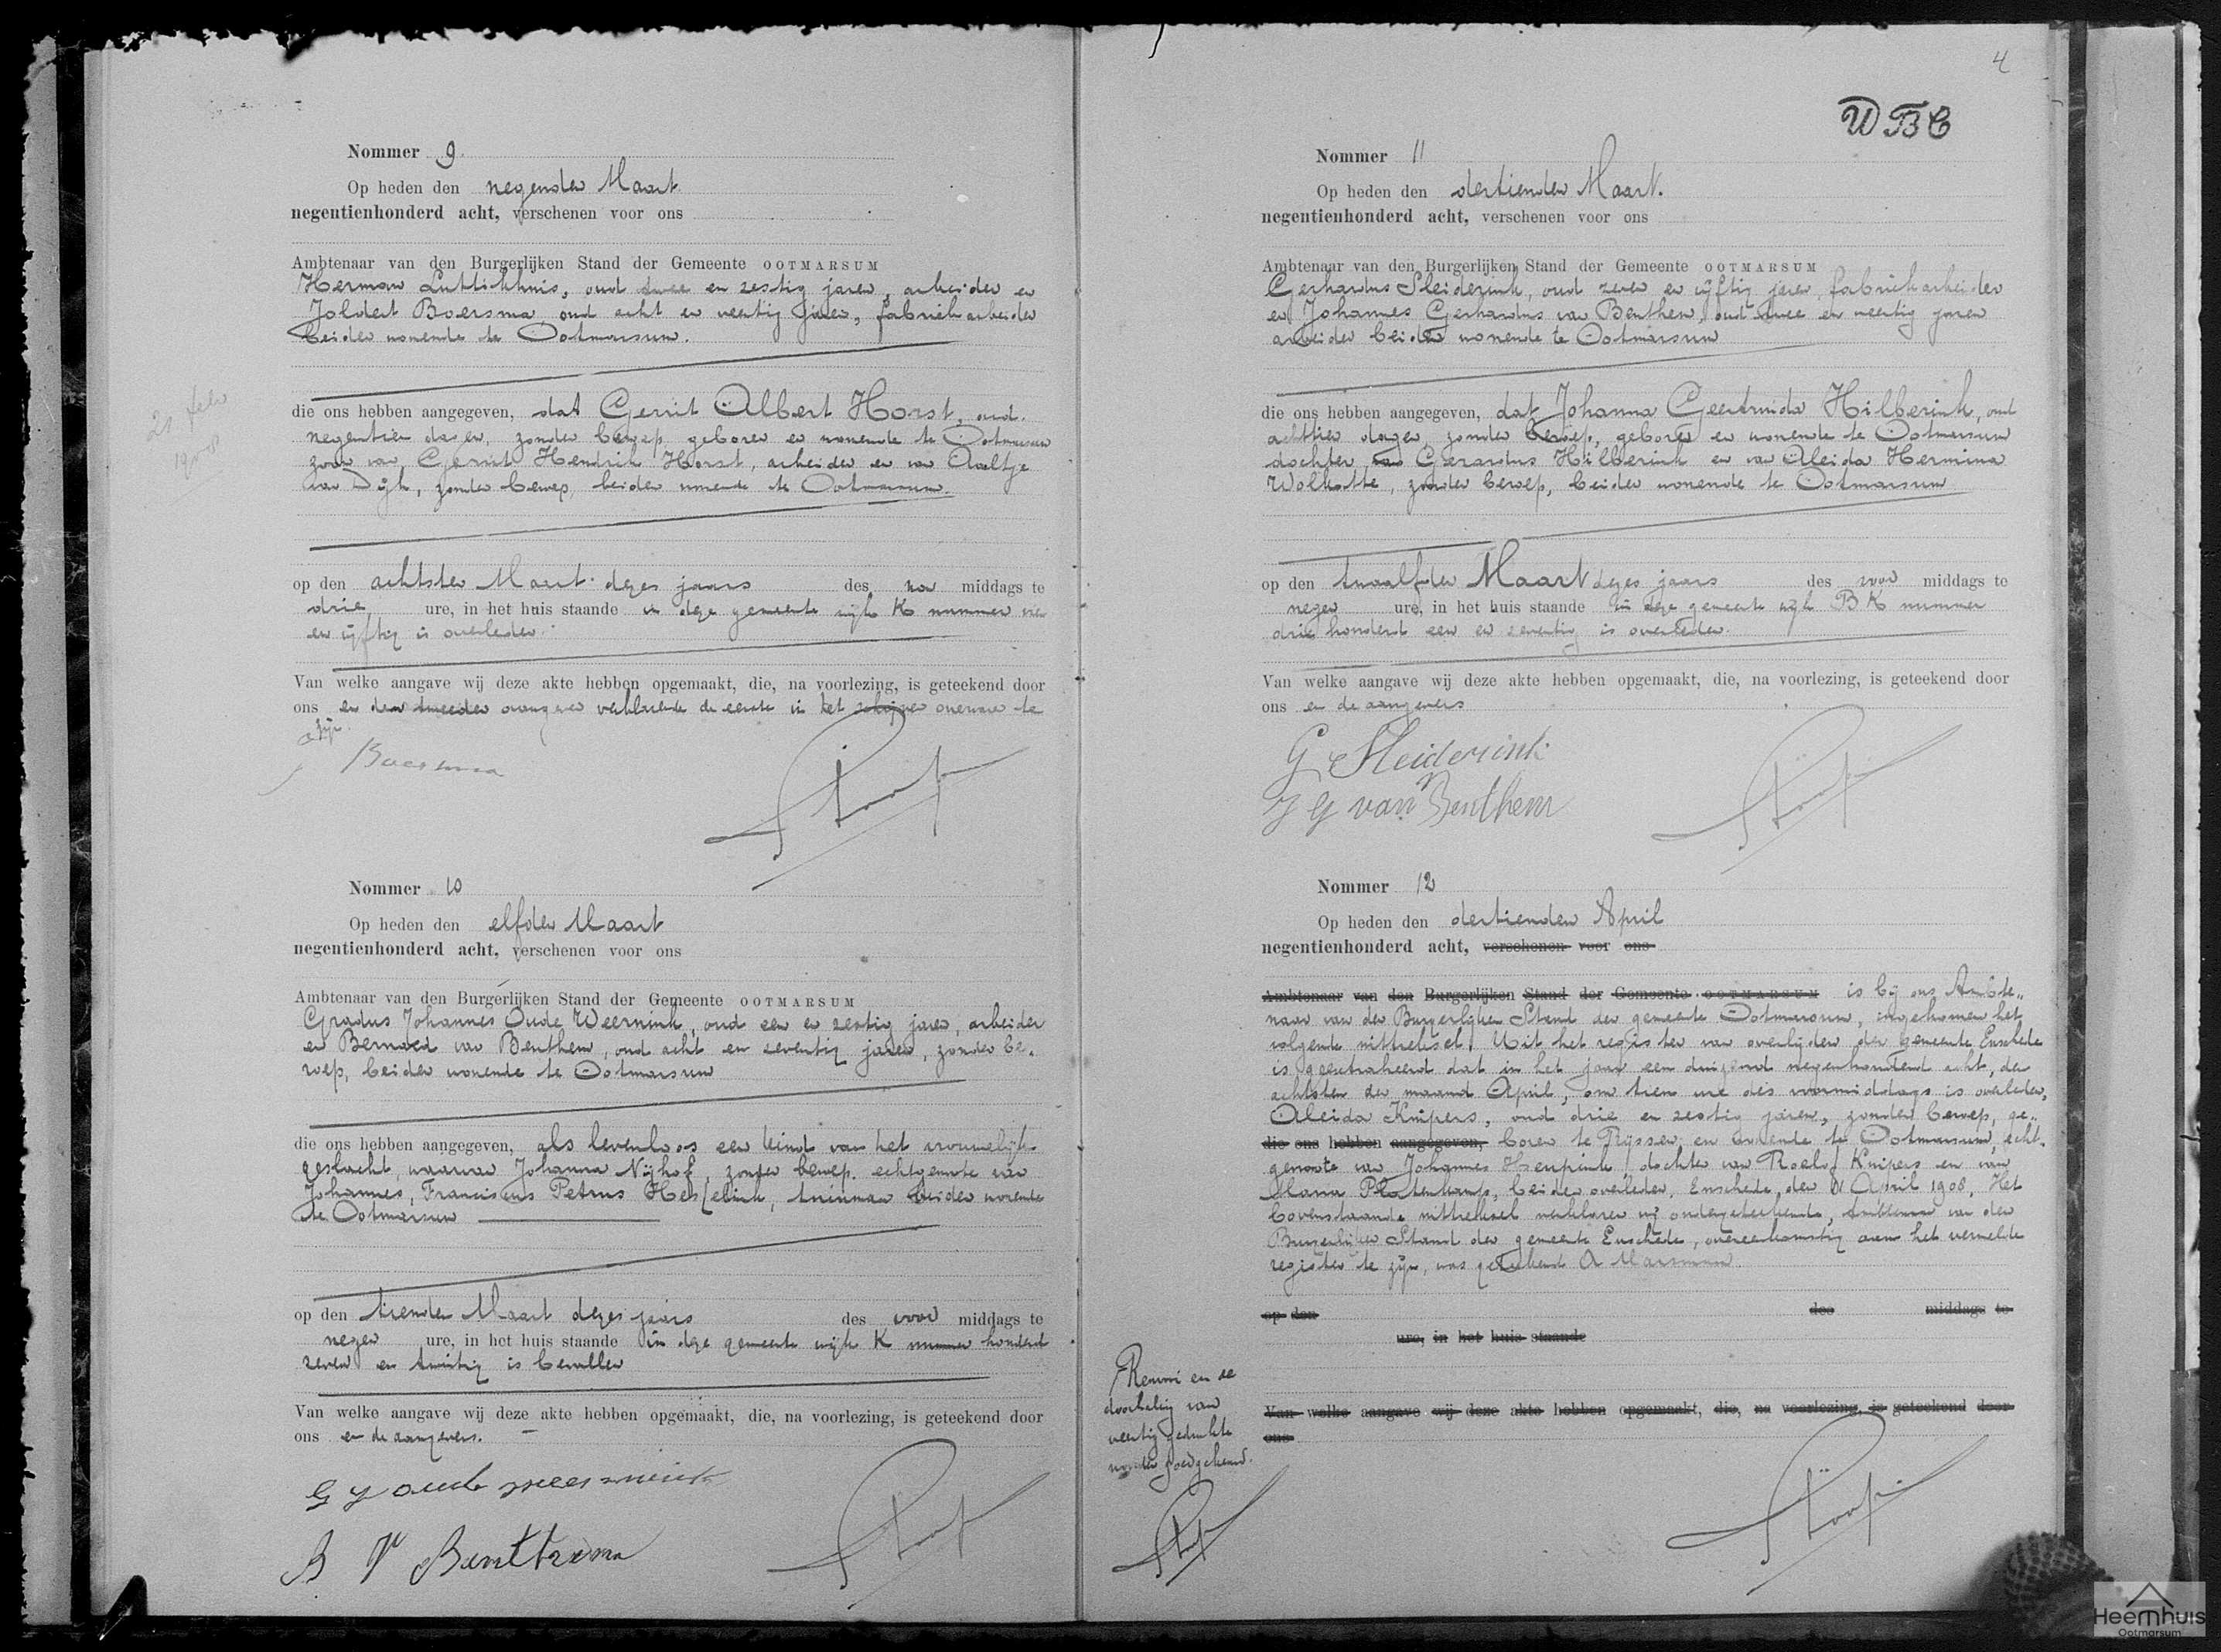 Nommer 9.
Op heden den negenden Maart
negentienhonderd acht, verschenen voor ons
Ambtenaar van den Burgerlijken Stand der Gemeente OOTMARSUM
Herman Luttikhuis, oud twee en zestig jaren, arbeider en
Joldert Boersma oud acht en veertig jaren, fabriekarbeider
beiden wonende te Ootmarsum.
21 febr
1908
die ons hebben aangegeven, dat Gerrit Albert Horst, oud
negentien dagen, zonder beroep, geboren en wonende te Ootmarsum
zoon van Gerrit Hendrik Horst, arbeider en van Aaltje
van Dijk, zonder beroep, beiden wonende te Ootmarsum.
op den achtsten Maart dezes jaars des na middags te
drie ure, in het huis staande in deze gemeente wijk K nummer vier
en vijftig is overleden.
Van welke aangave wij deze akte hebben opgemaakt, die, na voorlezing, is geteekend door
ons en den tweeden aangever verklarende de eerste in het schrijven onervaren te
zijn.
Boersma
Nommer 10
Op heden den elfden Maart
negentienhonderd acht, verschenen voor ons
Ambtenaar van den Burgerlijken Stand der Gemeente OOTMARSUM
Gradus Johannes Oude Weernink, oud een en zestig jaren, arbeider
en Bernard van Benthem, oud acht en zeventig jaren, zonder be-
roep, beiden wonende te Ootmarsum
die ons hebben aangegeven, als levenloos een kind van het vrouwelijk
geslacht, waarvan Johanna Nijhof, zonder beroep, echtgenoote van
Johannes, Franciscus Petrus Heszelink, tuinman beiden wonende
te Ootmarsum
op den tienden Maart dezes jaars des voor middags te
negen ure, in het huis staande in deze gemeente wijk K nummer honderd
zeven en twintig is bevallen
Van welke aangave wij deze akte hebben opgemaakt, die, na voorlezing, is geteekend door
ons en de aangevers.
G J oude weernink
B V Benthem
4
WBC
Nommer 11
Op heden den dertienden Maart.
negentienhonderd acht, verschenen voor ons
Ambtenaar van den Burgerlijken Stand der Gemeente OOTMARSUM
Gerhardus Sleiderink, oud zeven en vijftig jaren, fabriekarbeider
en Johannes Gerhardus van Benthem, oud twee en veertig jaren
arbeider beiden wonende te Ootmarsum
die ons hebben aangegeven, dat Johanna Geertruida Hilberink, oud
achttien dagen, zonder beroep, geboren en wonende te Ootmarsum
dochter van Gerardus Hilberink en van Aleida Hermina
Wolkotte, zonder beroep, beiden wonende te Ootmarsum
op den twaalfden Maart dezes jaars des voor middags te
negen ure, in het huis staande in deze gemeente wijk BK nummer
drie honderd een en zeventig is overleden.
Van welke aangave wij deze akte hebben opgemaakt, die, na voorlezing, is geteekend door
ons en de aangevers
G. Sleiderink
J G van Benthem
Nommer 12
Op heden den dertienden April
negentienhonderd acht, verschenen voor ons
Ambtenaar van den Burgerlijken Stand der Gemeente OOTMARSUM is bij ons Ambte-
naar van den Burgerlijken Stand der gemeente Ootmarsum, ingekomen het
volgende uittreksel: Uit het register van overlijden der gemeente Enschede
is geextraheerd dat in het jaar een duizend negenhonderd acht, den
achtsten der maand April, om tien ure des voormiddags is overleden,
Aleida Kuipers, oud drie en zestig jaren, zonder beroep, ge-
die ons hebben aangegeven, boren te Rijssen, en wonende te Ootmarsum, echt-
genoote van Johannes dochter van Roelof Kuipers en van
Maria Platenkamp, beiden overleden. Enschede, den 11 April 1908. Het
bovenstaande uittreksel verklaren wij ondergeteekende, Ambtenaar van den
Burgerlijken Stand der gemeente Enschede, overeenkomstig aan het vermelde
register te zijn, was geteekend A Marsman.
op den des middags te
ure, in het huis staande
Renvooi en de
doorhaling van
veertig gedrukte
woorden goedgekeurd.
Van welke aangave wij deze akte hebben opgemaakt, die, na voorlezing, is geteekend door
ons
Heemhuis
Ootmarsum